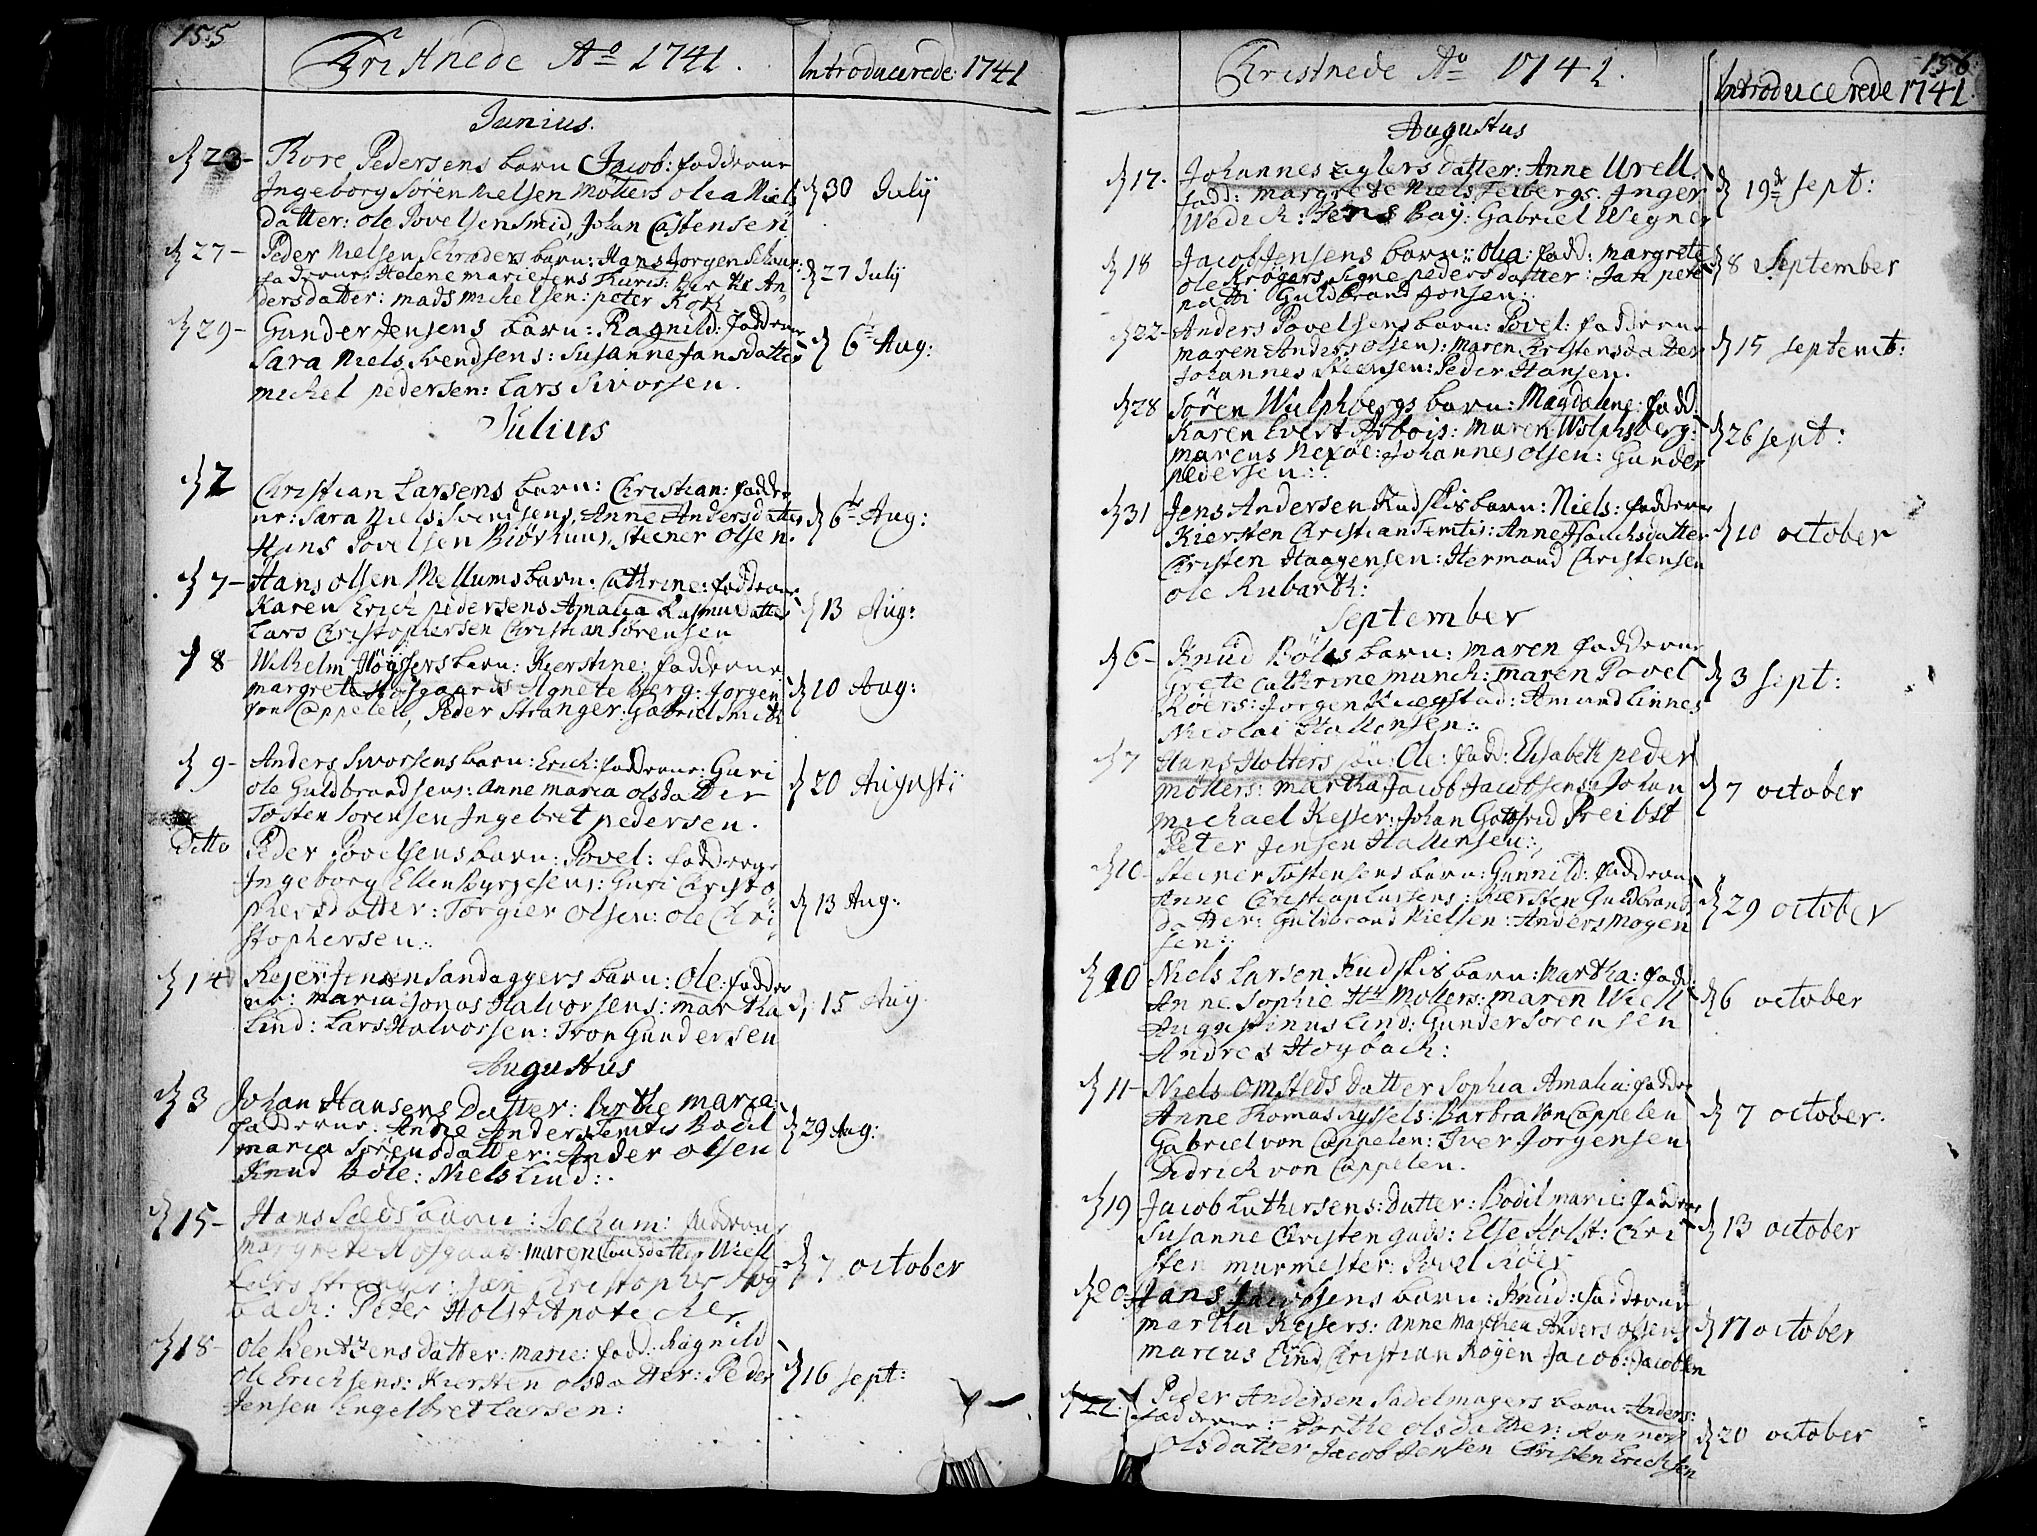 155
Christnede Aº 1741.
Introducerede: 1741
Junius.
d 23- Tore Pedersens barn Jacob: fadderne
Ingeborg Søren Nielsen Møllers Olea Niels
datter: Ole Povelsen Smid, Johan Castensen
d 30 Julij
d 27- Peder Nielsen Schrøders barn: Hans Jørgen
fadderne Helene Marie Jens Thuris: Birthe An
dersdatter: Mads Michelsen: Peter Koth
d 27 Julij
d 29- Gunder Jensens barn: Ragnild: fadderne
Sara Niels Svendsens: Susanne Jansdatter
Michel Pedersen: Lars Sivorsen.
d 6te Aug:
Julius
d 2 Christian Larsens barn: Christian: fadder
ne: Sara Niels Svendsens, Anne Andersdatter
Hans Povelsen Biørhuus, Steener Olsen.
d 6te Aug:
d 7- Hans Olsen Mellums barn: Cathrine: fadderne
Karen Erich Pedersens Amalia Rasmusdatter
Lars Christophersen Christian Sørensen
d 13 Aug:
d 8- Wilhelm Høysers barn: Kierstine: fadderne
Margrete Hofgaards Agnete Berg: Jørgen
von Cappelen, Peder Stranger: Gabriel Smith
d 10 Aug:
d 9- Anders Sivorsens barn: Erich: fadderne: Guri
Ole Guldbrandsens: Anne Maria Olsdatter
Tosten Sørensen Ingebret Pedersen.
d 20 Augusti
Ditto Peder Povelsens barn: Povel: fadderne
Ingeborg Ellen Byrgesens: Guri Christo
phersdatter: Torgier Olsen: Ole Chri
stophersen.
d 13 Aug:
d 14 Rejer Jensen Sandaggers barn: Ole: fadder
ne: Maria Jonas Halvorsens: Martha
Lind: Lars Halvorsen: Iron Gundersen
d 15 Aug
Augustus
d 3 Johan Hansens Datter: Birthe Maria:
fadderne: Anne Anders Temtis Bodil
Maria Sørensdatter: Ander Olsen
Knud Bøle: Niels Lind:
d 29 Aug:
d 15- Hans Seeds barn: Jocham: fadderne
Margrete Hofgaar Maren Lousdatter Wiell
Lars Stranger: Jan Christopher Høg
bach: Peter Holst Apotecher
d 7 october
d 18- Ole Bentzens datter: Marie: fadd: Ragnild
Ole Erichsens: Kiersten Olsdatter: Peder
Jensen Engelbret Larsen:
d 16 sept:
156
Christnede Aº 1741.
Introducerede 1741.
Augustus
d 17. Johannes Zylers datter: Anne Urell.
fadd: Margrete Niels Feibergs. Inger
Wedich: Jens Bay: Gabriel Wegner
d 19de sept:
d 18 Jacob Jensens barn: Olea: fadd: Margrete
Ole Krøgers Signe Pedersdatter: Jan Pete
natti Guldbrand Jonsen:
d 8 September
d 22- Anders Povelsens barn: Povel: fadderne
Maren Anders Olsens: Maren Christensdatter
Johannes Steensen: Peder Hansen.
d 15 septemt:
d 28 Søren Wulphbergs barn: Magdalene: fadd.
Karen Evert Arbois: Maren Wolphsberg:
Marcus Nexøe: Johannes Olsen: Gunder
Pedersen:
d 26 sept:
d 31 Jens Andersen Kudskis barn: Niels: fadderne
Kiersten Christian Temtis: Anne Isachsdatter
Christen Haagensen: Hermand Christensen
Ole Rubarth:
d 10 october
September
d 6- Knud Bøles barn: Maren fadderne
Grete Cathrine Munch: Maren Povel
Roers: Jørgen Kragstad: Amund Linnes
Nicolai Hallensen:
d 3 sept:
d 7 Hans Holters søn: Ole: fadd: Elisabeth Peder
Møllers: Martha Jacob Jacobsens: Johan
Michael Keyser: Johan Gotfrid Preibst
Peter Jensen Hallensen:
d 7 october
d 10- Steener Tostensens barn: Gunnild: fadderne
Anne Christian Larsens: Kiersten Guldbrands
datter: Guldbrand Nielsen: Anders Mogen
sen:
d 29 october
d 10 Niels Larsen Kudskis barn: Martha: fadd:
Anne Sophie Hr Møllers: Maren Wiell
Augustinus Lind: Gunder Sørensen
Andres Høybach:
d 6 october
d 11- Niels Omsteds datter Sophia Amalia: fadder
Anne Thomas Nyssels: Barbra von Cappelen
Gabriel von Cappelen: Iver Jørgensen
Didrich von Cappelen.
d 7 october.
d 19 Jacob Luthersens: Datter: Bodil Marie: fadder
Susanne Christen Guds: Else Holst: Chri
sten Murmester: Povel Röyr
d 13 october
d 20. Hans Jacobsens barn: Knud: fadderne
Martha Keysers: Anne Marthea Anders Olsens
Marcus Lind Christian Røyen Jacob Jacobsen
d 17 october
d 22 Peder Andersen Sadelmagers barn Anders:
fadderne: Dorthe Olsdatter: Ronnov
Olsdatter Jacob Jensen Christen Erichsen
d 20 october